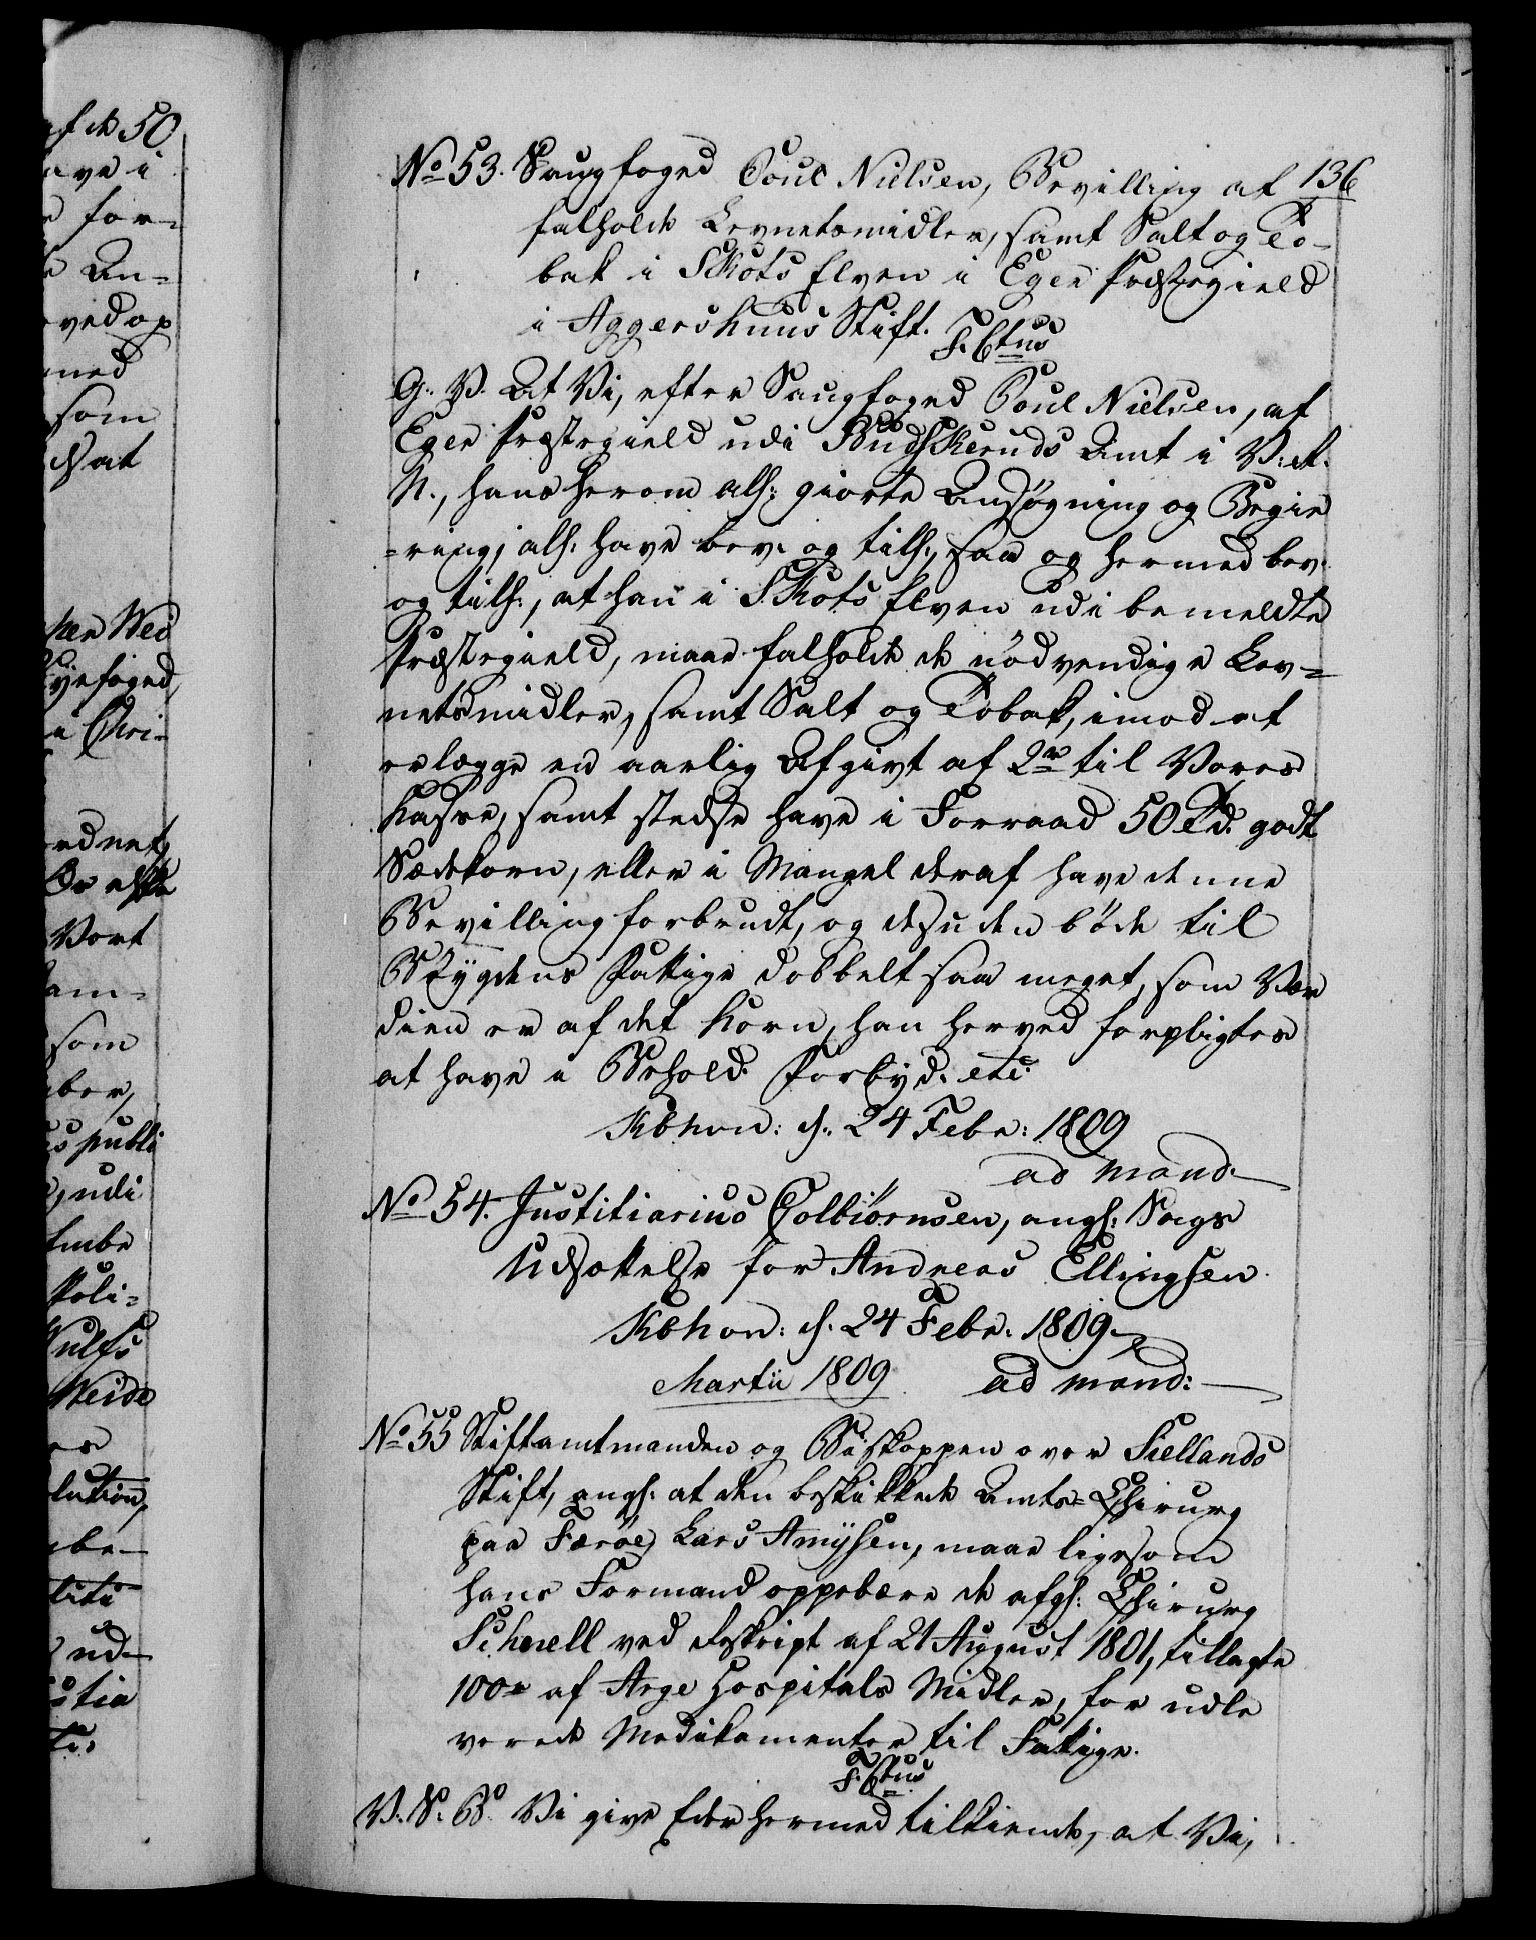 136
No 53. Saugfoged Poul Nielsen, Bevilling at
falholde Levnetsmidler, samt Salt og To-
bak i Skots Elven i Eger Præstegield
i Aggershuus Stift.
F. 6tus
G. V. At Vi, efter Saugfoged Poul Nielsen, af
Eger Præstegield udi Budskeruds Amt i V. R.
N., hans herom alh: giorte Ansøgning og Begie
=ring, alh: have bev: og tilh:, saa og hermed bev:
og tilh:, at han i Skots Elven udi bemeldte
Præstegield, maae falholde de nødvendige Lev=
netsmidler, samt Salt og Tobak, imod at
erlægge en aarlig Afgivt af 2 rd til Vores
Kasse, samt stedse have i Forraad 50 Td. godt
Sædekorn, eller i Mangel deraf have denne
Bevilling forbrudt, og desuden bøde til
Bygdens Fattige dobbelt saa meget, som Vær
dien er af det Korn, han herved forpligtes
at have i Behold. Forbyd: etc:
Kbhvn: d: 24 Febr: 1809
ad mand.
No 54. Justitiarius Colbiørnsen, angh: Sags
Udsættelse for Andreas Ellingsen.
Kbhvn: d. 24 Febr. 1809.
Martii 1809 ad mand:
No 55 Stiftamtmanden og Biskoppen over Siellands
Stift, angh: at den beskikkede Amts=Chirurg
paa Færøe, Lars Amysen, maae ligesom
hans Formand oppebære de afgh: Chirurg
Schnell ved Reskript af 21 August 1801, tillagte
100 rd af Arge Hospitals Midler, for udle
verede Medikamenter til Fattige.
F. 6tus
V. S. B. Vi give Eder hermed tilkiende, at Vi,